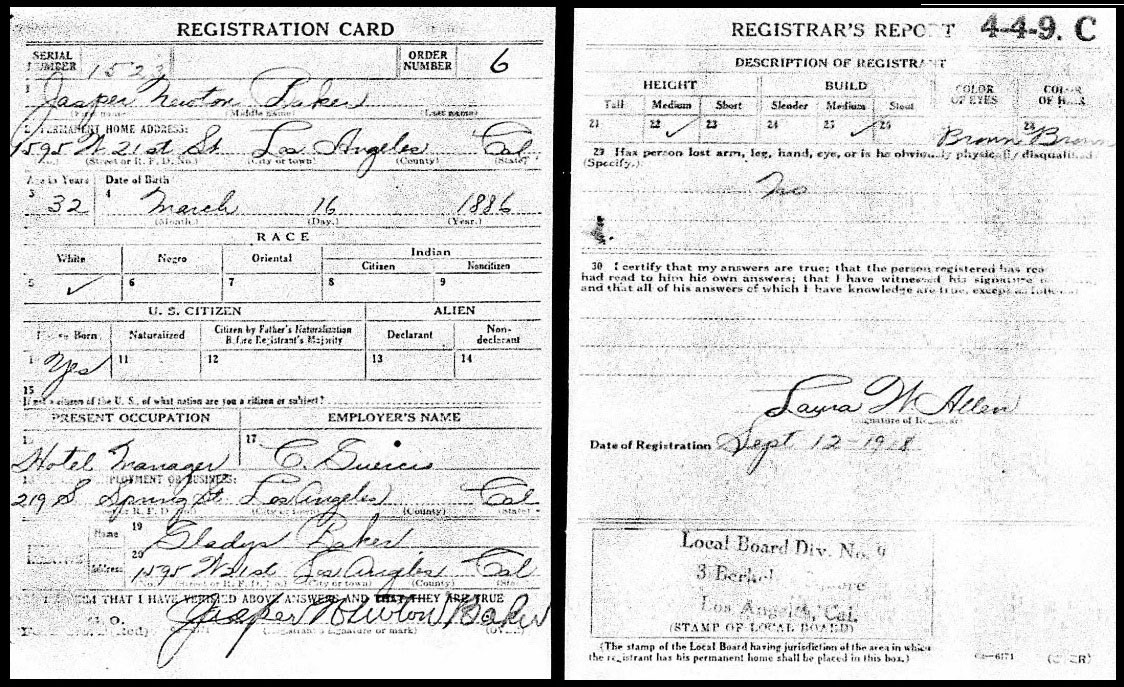 REGISTRATION CARD
SERIAL NUMBER 1523 ORDER NUMBER 6
1 Jasper Newton Baker
(First name) (Middle name) (Last name)
2 PERMANENT HOME ADDRESS:
1595 W. 21st St. Los Angeles Cal
(No.) (Street or R. F. D. No.) (City or town) (County) (State)
Age in Years Date of Birth
3 32 4 March 16 1886
(Month.) (Day.) (Year.)
RACE
White Negro Oriental Indian
Citizen Noncitizen
5 ✓ 6 7 8 9
U. S. CITIZEN ALIEN
Born Naturalized Citizen by Father's Naturalization Before Registrant's Majority Declarant Non-declarant
Yes 11 12 13 14
15
If not a citizen of the U. S., of what nation are you a citizen or subject?
PRESENT OCCUPATION EMPLOYER'S NAME
17
Hotel Manager C.
PLOYMENT OR BUSINESS:
219 S Spring St. Los Angeles Cal
or R. F. D. (City or town) (County) (State)
Name 19 Gladys Baker
Address 20 1595 W 21st Los Angeles Cal
(No.) (Street or R. F. D. No.) (City or town) (County)
THAT I HAVE VERIFIED ABOVE ANSWERS AND THAT THEY ARE TRUE
Jasper Newton Baker
(Registrant's signature or mark)
REGISTRAR'S REPORT 4-4-9. C
DESCRIPTION OF REGISTRANT
HEIGHT BUILD COLOR OF EYES COLOR OF HAIR
Tall Medium Short Slender Medium Stout
21 22 ✓ 23 24 25 ✓ 26 Brown 28 Brown
29 Has person lost arm, leg, hand, eye, or is he obviously physically disqualified?
(Specify.)
No
30 I certify that my answers are true; that the person registered has rea
had read to him his own answers; that I have witnessed his signature
and that all of his answers of which I have knowledge are true, except as follows:
Laura W. Allen
(Signature of Registrar)
Date of Registration Sept 12-1918
Local Board Div. No. 9
3 Berkel ore
Los Angeles, Cal.
(STAMP OF LOCAL BOARD)
(The stamp of the Local Board having jurisdiction of the area in which
the registrant has his permanent home shall be placed in this box.)